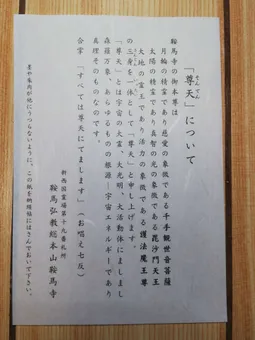 「尊天」について
そんてん
鞍馬寺の御本尊は
月輪の精霊であり慈愛の象徴である千手観世音菩薩
太陽の精霊であり真智の光の象徴である毘沙門天王
大地の霊王であり活力の象徴である護法魔王尊
の三身を一体として「尊天」と申し上げます。
「尊天」とは宇宙の大霊、大光明、大活動体にましまし
森羅万象、あらゆるものの根源―宇宙エネルギーであり
真理そのものなのです。
合掌 「すべては尊天にてまします」（お唱え七反）
新西国霊場第十九番札所
鞍馬弘教総本山鞍馬寺
墨や朱肉が他にうつらないように、この紙を納経帖にはさんでおいて下さい。